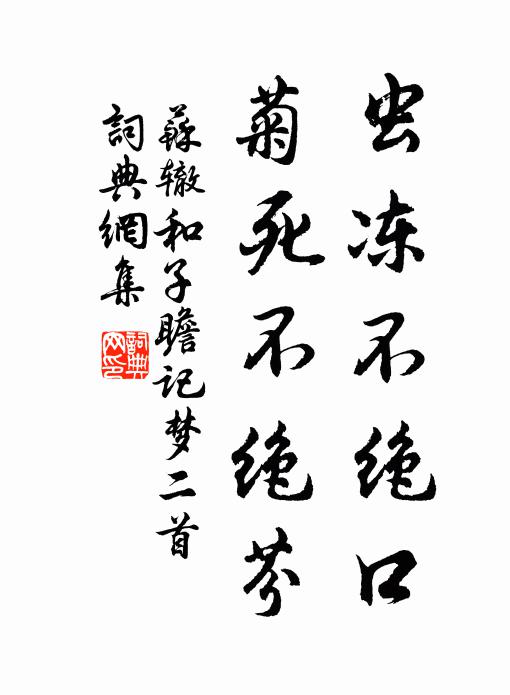 虫冻不绝口
菊死不绝芬
蘇辙和子瞻记梦二首
詞典網集
詞典網印